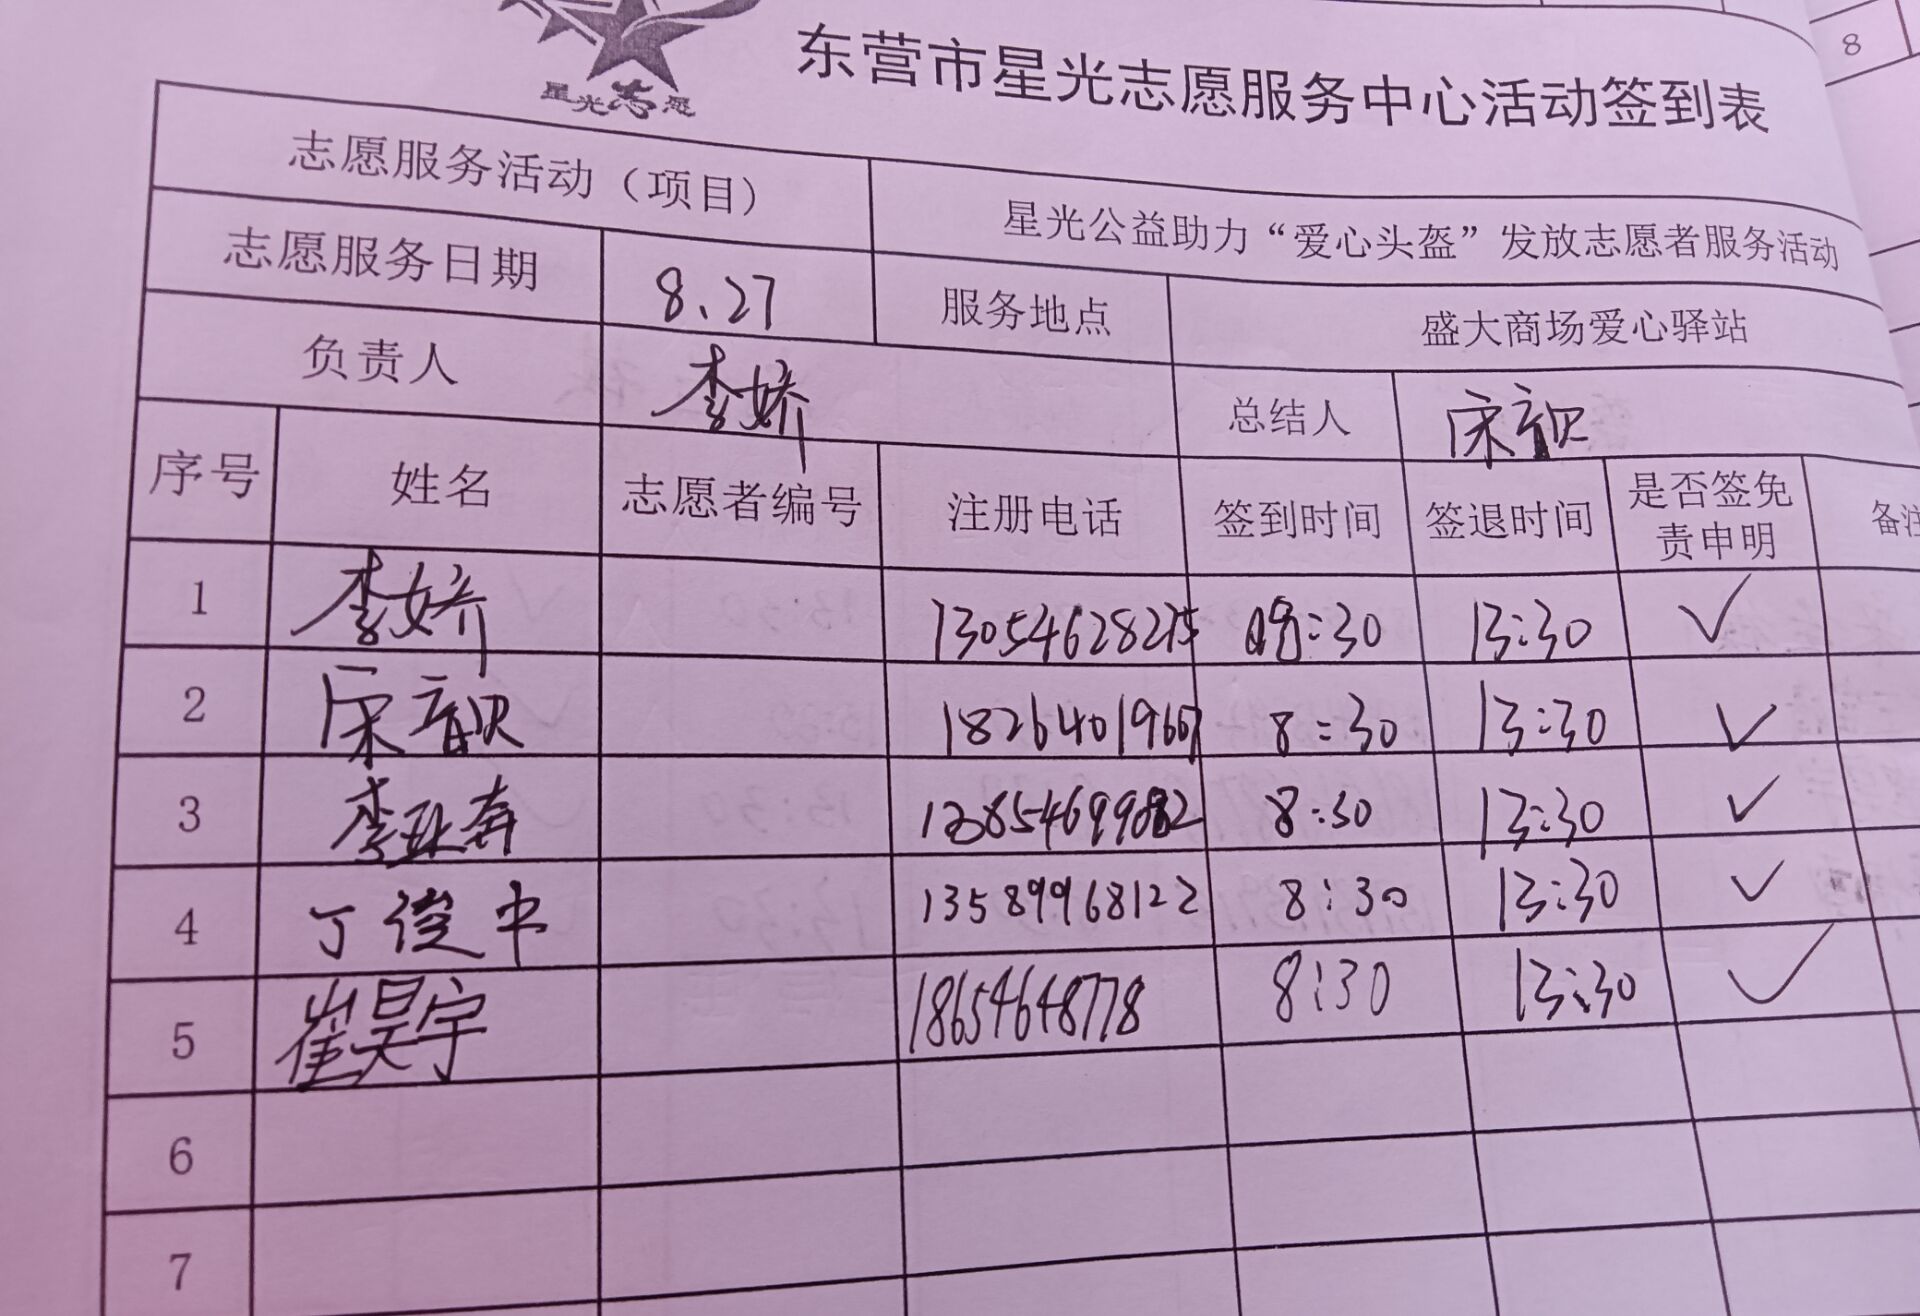 星光志愿
东营市星光志愿服务中心活动签到表
8
志愿服务活动（项目） 星光公益助力“爱心头盔”发放志愿者服务活动
志愿服务日期 8、27 服务地点 盛大商场爱心驿站
负责人 李娇 总结人 宋歆
序号 姓名 志愿者编号 注册电话 签到时间 签退时间 是否签免责申明 备注
1 李娇 13054628275 13:30 ✓
2 宋歆 18264019667 8:30 13:30 ✓
3 李亚奔 8:30 13:30 ✓
4 丁俊中 13589968122 8:30 13:30 ✓
5 崔昊宇 18654648778 8:30 13:30 ✓
6
7